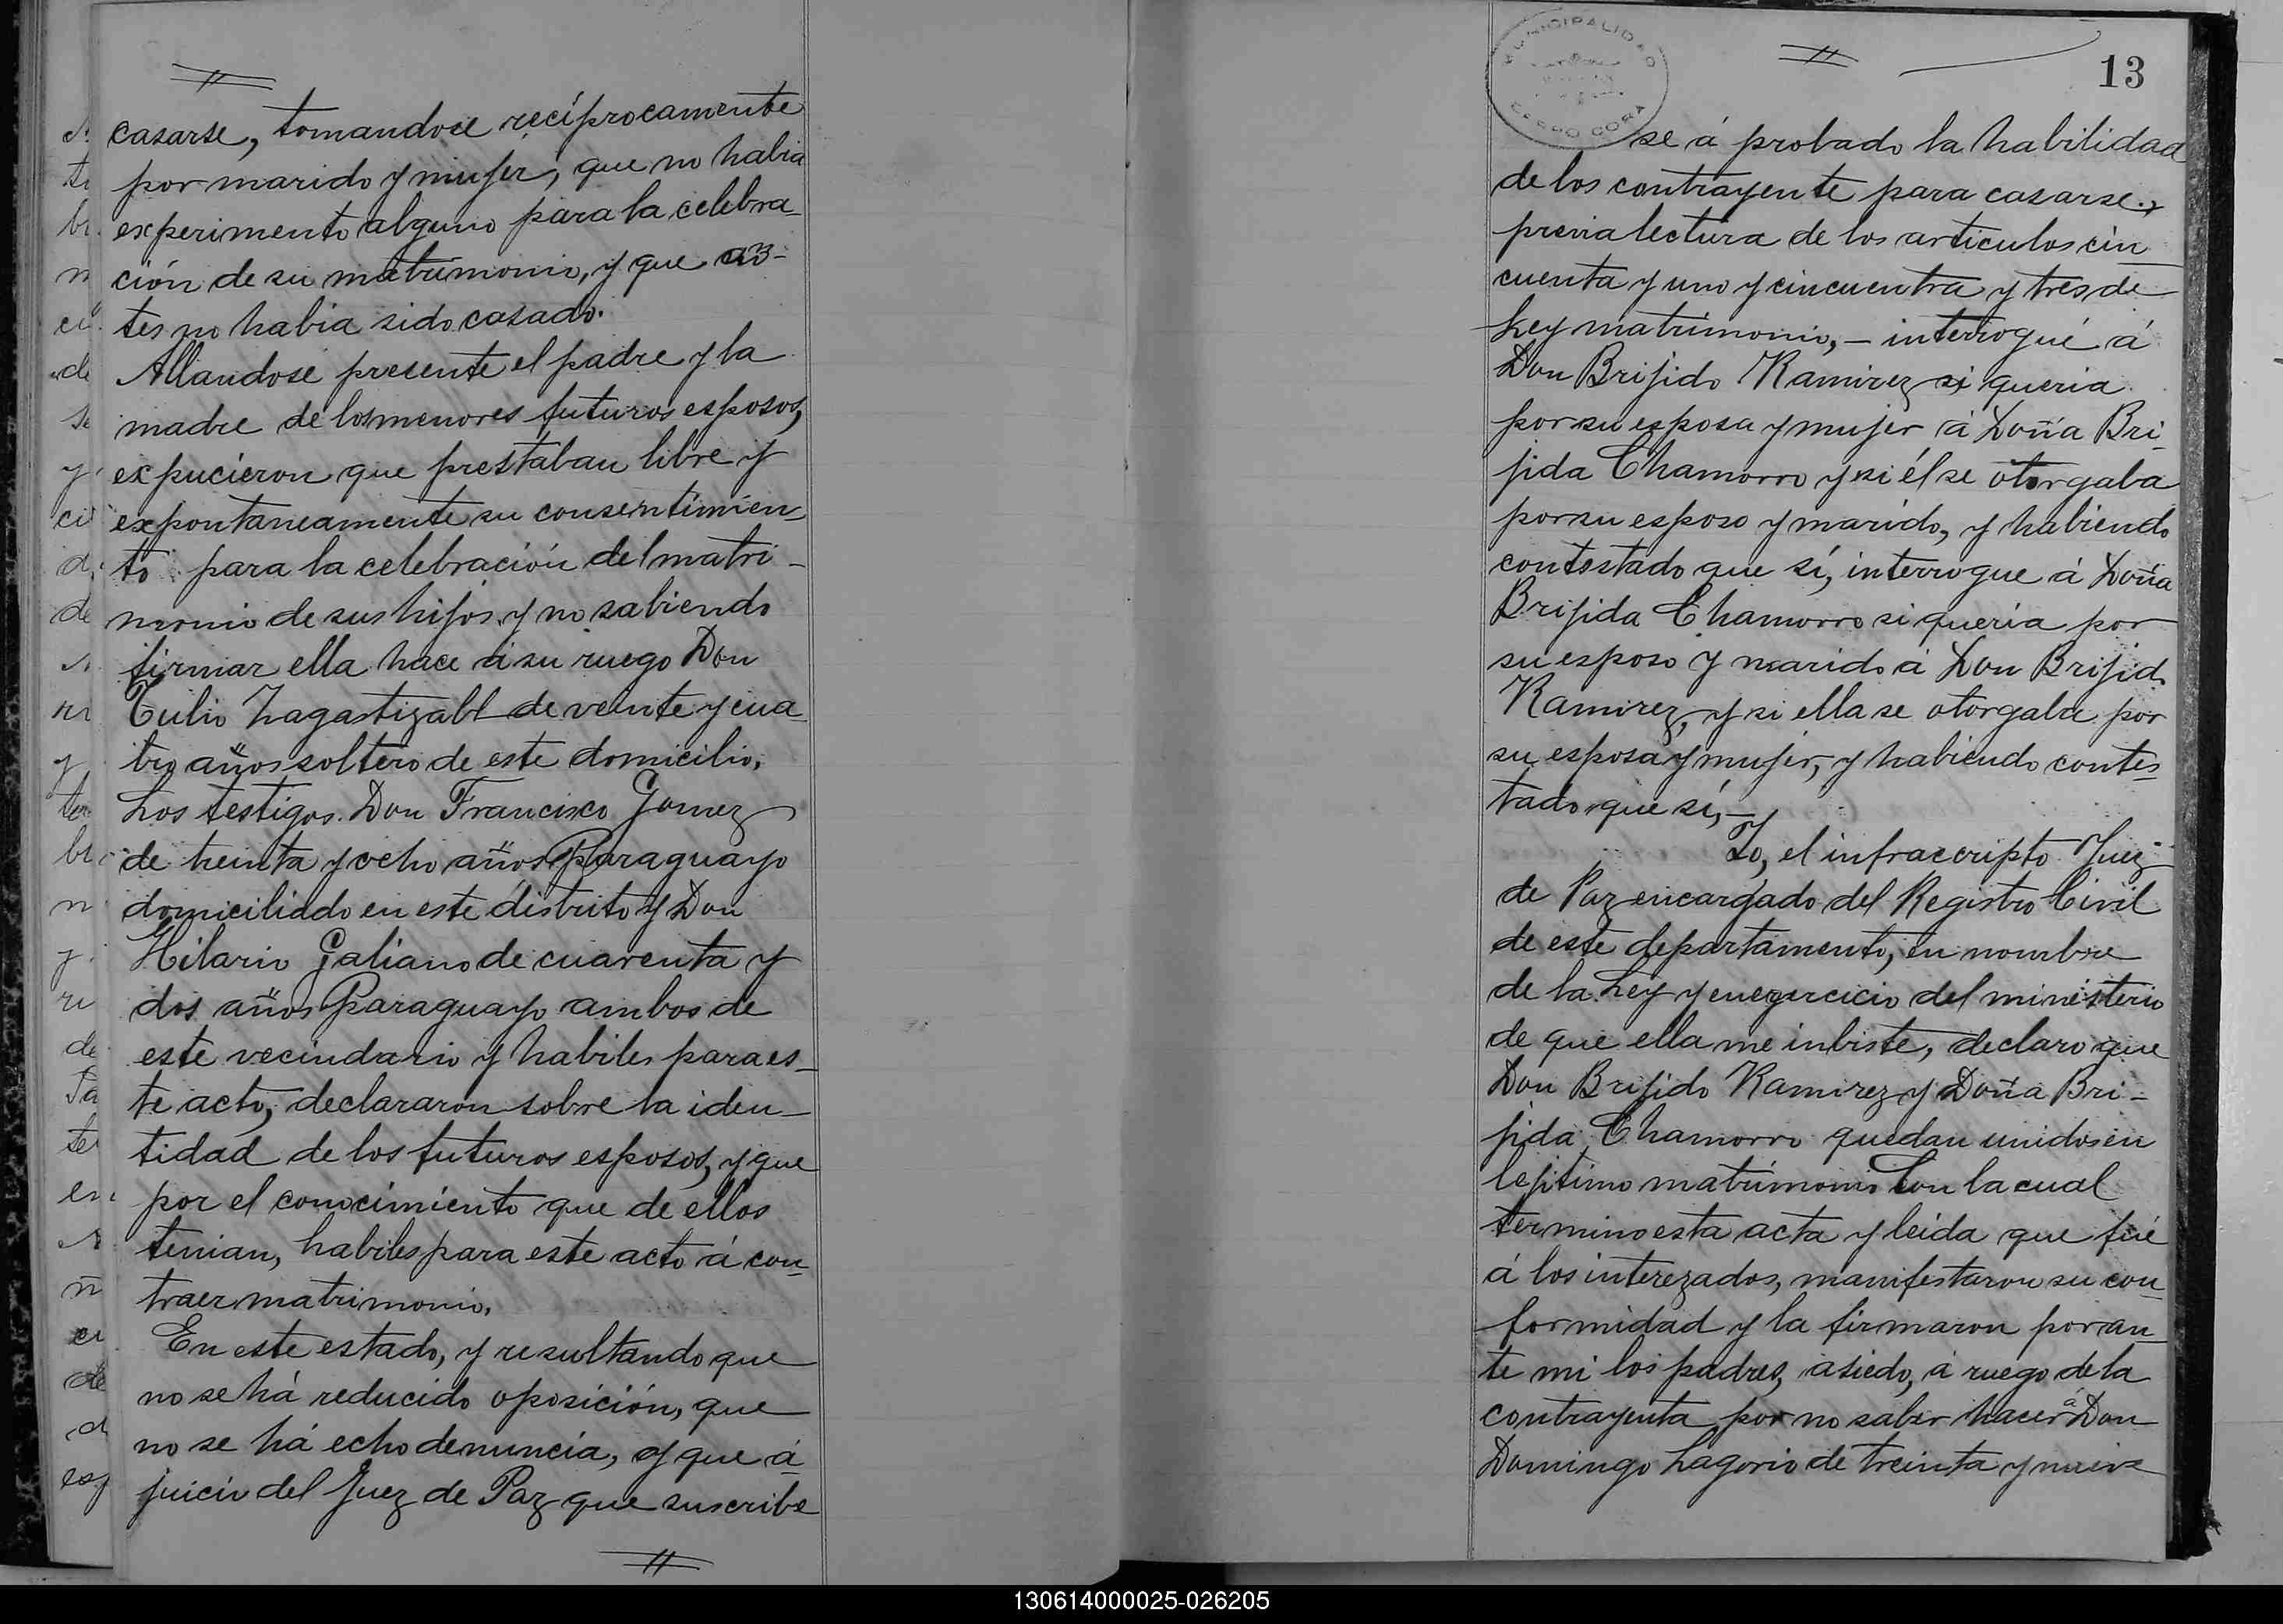 casarse, tomandose recíprocamente
por marido y mujer, que no habia
experimento alguno para la celebra-
ción de su matrimonio, y que an-
tes no habia sido casado.
Allandose presente el padre y la
madre de los menores futuros esposos,
expucieron que prestaban libre y
expontaneamente su consentimien-
to para la celebración del matri-
monio de sus hijos y no sabiendo
firmar ella hace á su ruego Don
Tulio Zagastizabl de veinte y cua
tro años soltero de este domicilio,
Los testigos. Don Francisco Gomez
de treinta y ocho años Paraguayo
domiciliado en este distrito y Don
Hilario Galiano de cuarenta y
dos años Paraguayo ambos de
este vecindario y habiles para es-
te acto, declararon sobre la iden-
tidad de los futuros esposos, y que
por el conocimiento que de ellos
tenian, habiles para este acto á con-
traer matrimonio.
En este estado, y resultando que
no se há reducido oposición, que
no se há echo denuncia, y que á
juicio del Juez de Paz que suscribe
13
MUNICIPALIDAD
CORA
se á probado la habilidad
de los contrayente para casarse.,
previa lectura de los articulos cin
cuenta y uno y cincuentra y tres de
Ley matrimonio, - interrogué á
Don Brijido Ramirez si queria
por su esposa y mujer á Doña Bri
jida Chamorro y si él se otorgaba
por su esposo y marido, y habiendo
contestado que sí, interrogue á Doña
Brijida Chamorro si quería por
su esposo y marido á Don Brijido
Ramirez, y si ella se otorgaba por
su esposa y mujer, y habiendo contes
tado que sí, -
Yo, el infraccripto Juez
de Paz encargado del Registro Civil
de este departamento, en nombre
de la Ley y en ezercicio del ministerio
de que ella me inbiste, declaro que
Don Brijido Ramirez y Doña Bri-
jida Chamorro quedan unidos en
lejitimo matrimonio Con la cual
termino esta acta y leida que fué
á los interezados, manifestaron su con
formidad y la firmaron por an
te mi los padres, asiedo, á ruego de la
contrayenta por no saber hacer á Don
Domingo Lagorio de treinta y nueve
130614000025-026205